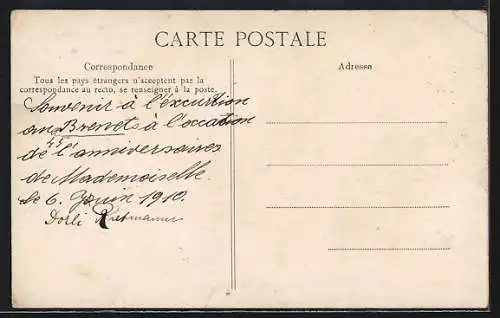 CARTE POSTALE
Correspondance
Tous les pays étrangers n'acceptent pas la
correspondance au recto, se renseigner à la poste.
Adresse
Souvenir à l'excurtion
au Brenets à l'occation
de l'anniversaires
de Mademoiselle.
le 6. Juin 1910.
Dorli